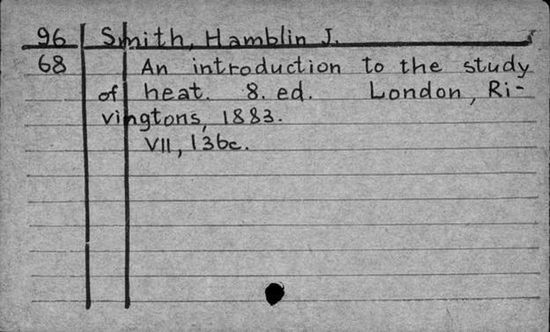 96 Smith, Hamblin J.
68 An introduction to the study
of heat. 8. ed. London, Ri-
vingtons, 1883.
VII, 136c.